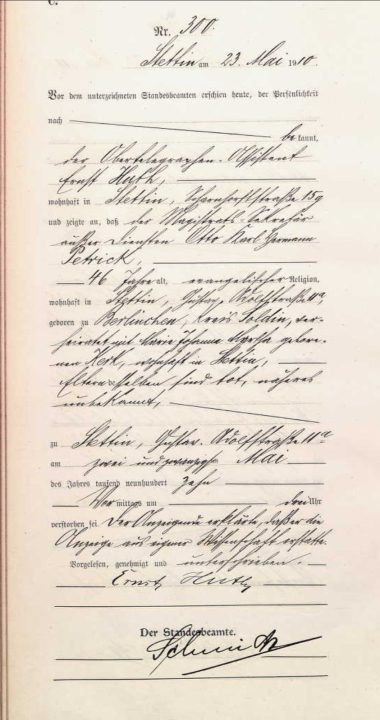 C.
Nr. 300.
Stettin am 23. Mai 1910.
Vor dem unterzeichneten Standesbeamten erschien heute, der Persönlichkeit
nach
be kannt,
der Obertelegraphen-Assistent
Ernst Huth,
wohnhaft in Stettin, Scharnhorststraße 15g
und zeigte an, daß der Magistrats-Sekretär
außer Diensten Otto Karl Hermann
Petrick,
46 Jahre alt, evangelischer Religion,
wohnhaft in Stettin, Gustav Adolfstraße 11a,
geboren zu Berlinchen, Kreis Soldin, ver-
heiratet mit Marie Johanna Martha gebore-
nen, wohnhaft in Stettin,
Eltern desselben sind tot, näheres
unbekannt,
zu Stettin, Gustav-Adolfstraße 11a
am zwei und zwanzigsten Mai
des Jahres tausend neunhundert zehn
Vor mittags um Uhr
verstorben sei. Der Anzeigende erklärte, daß er die
Anzeige aus eigener Wissenschaft erstatte.
Vorgelesen, genehmigt und unterschrieben.
Ernst Huth
Der Standesbeamte.